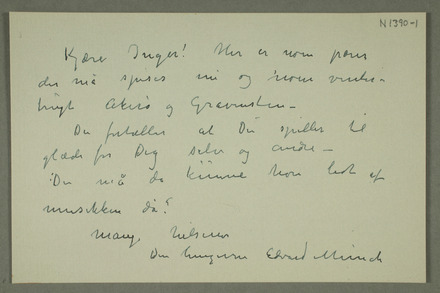 N 1390-1
Kjære Inger! Her er nom pærer
der må spises nu og noen vinter-
frugt Akerø og Gravensten –
Du fortæller at Du spiller til
glæde for Dig selv og andre –
Du må da kunne have lidt af
musikken da?
Mange hilsener
Din hengivne Edvard Munch